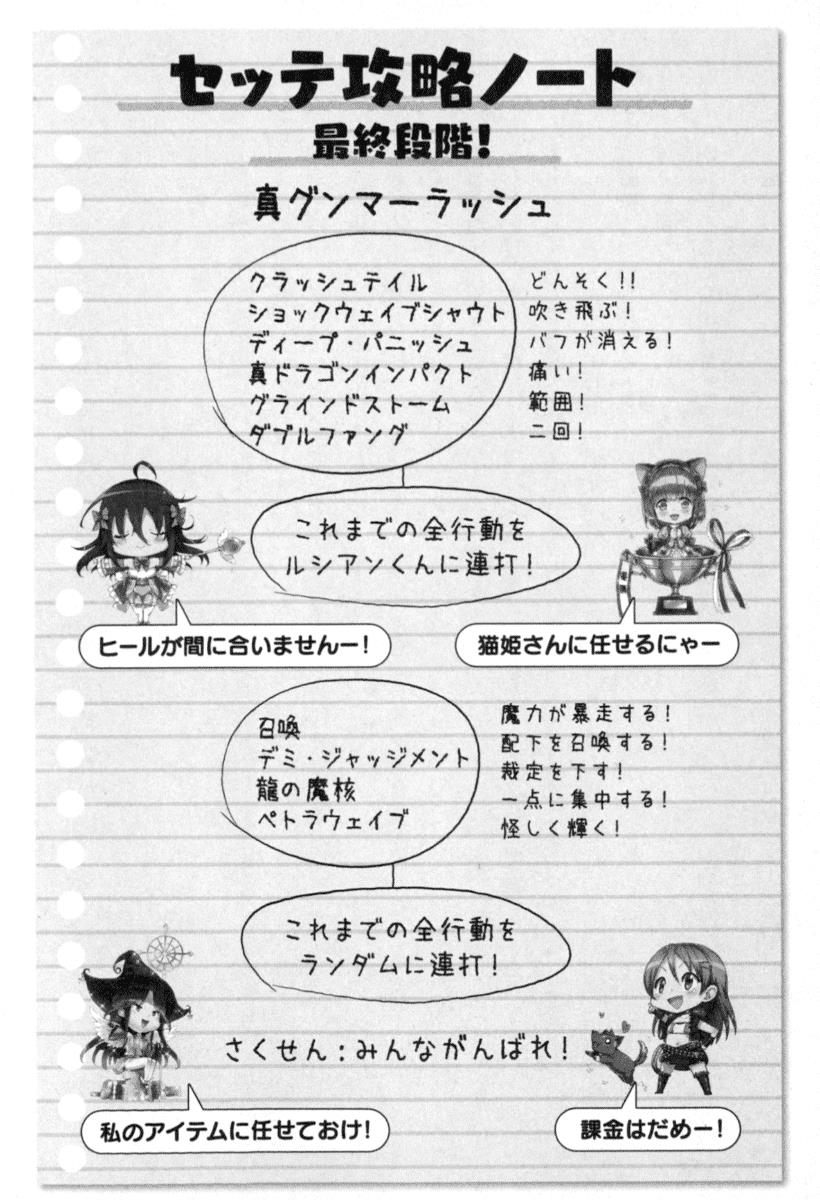 セッテ攻略ノート
最終段階!
真グンマーラッシュ
クラッシュテイル どんそく!!
ショックウェイブシャウト 吹き飛ぶ!
ディープ・パニッシュ バフが消える!
真ドラゴンインパクト 痛い!
グラインドストーム 範囲!
ダブルファング 二回!
これまでの全行動を
ルシアンくんに連打!
ヒールが間に合いませんー!
猫姫さんに任せるにゃー
召喚
デミ・ジャッジメント
龍の魔核
ペトラウェイブ
魔力が暴走する!
配下を召喚する!
裁定を下す!
一点に集中する!
怪しく輝く!
これまでの全行動を
ランダムに連打!
さくせん:みんながんばれ!
私のアイテムに任せておけ!
課金はだめー!